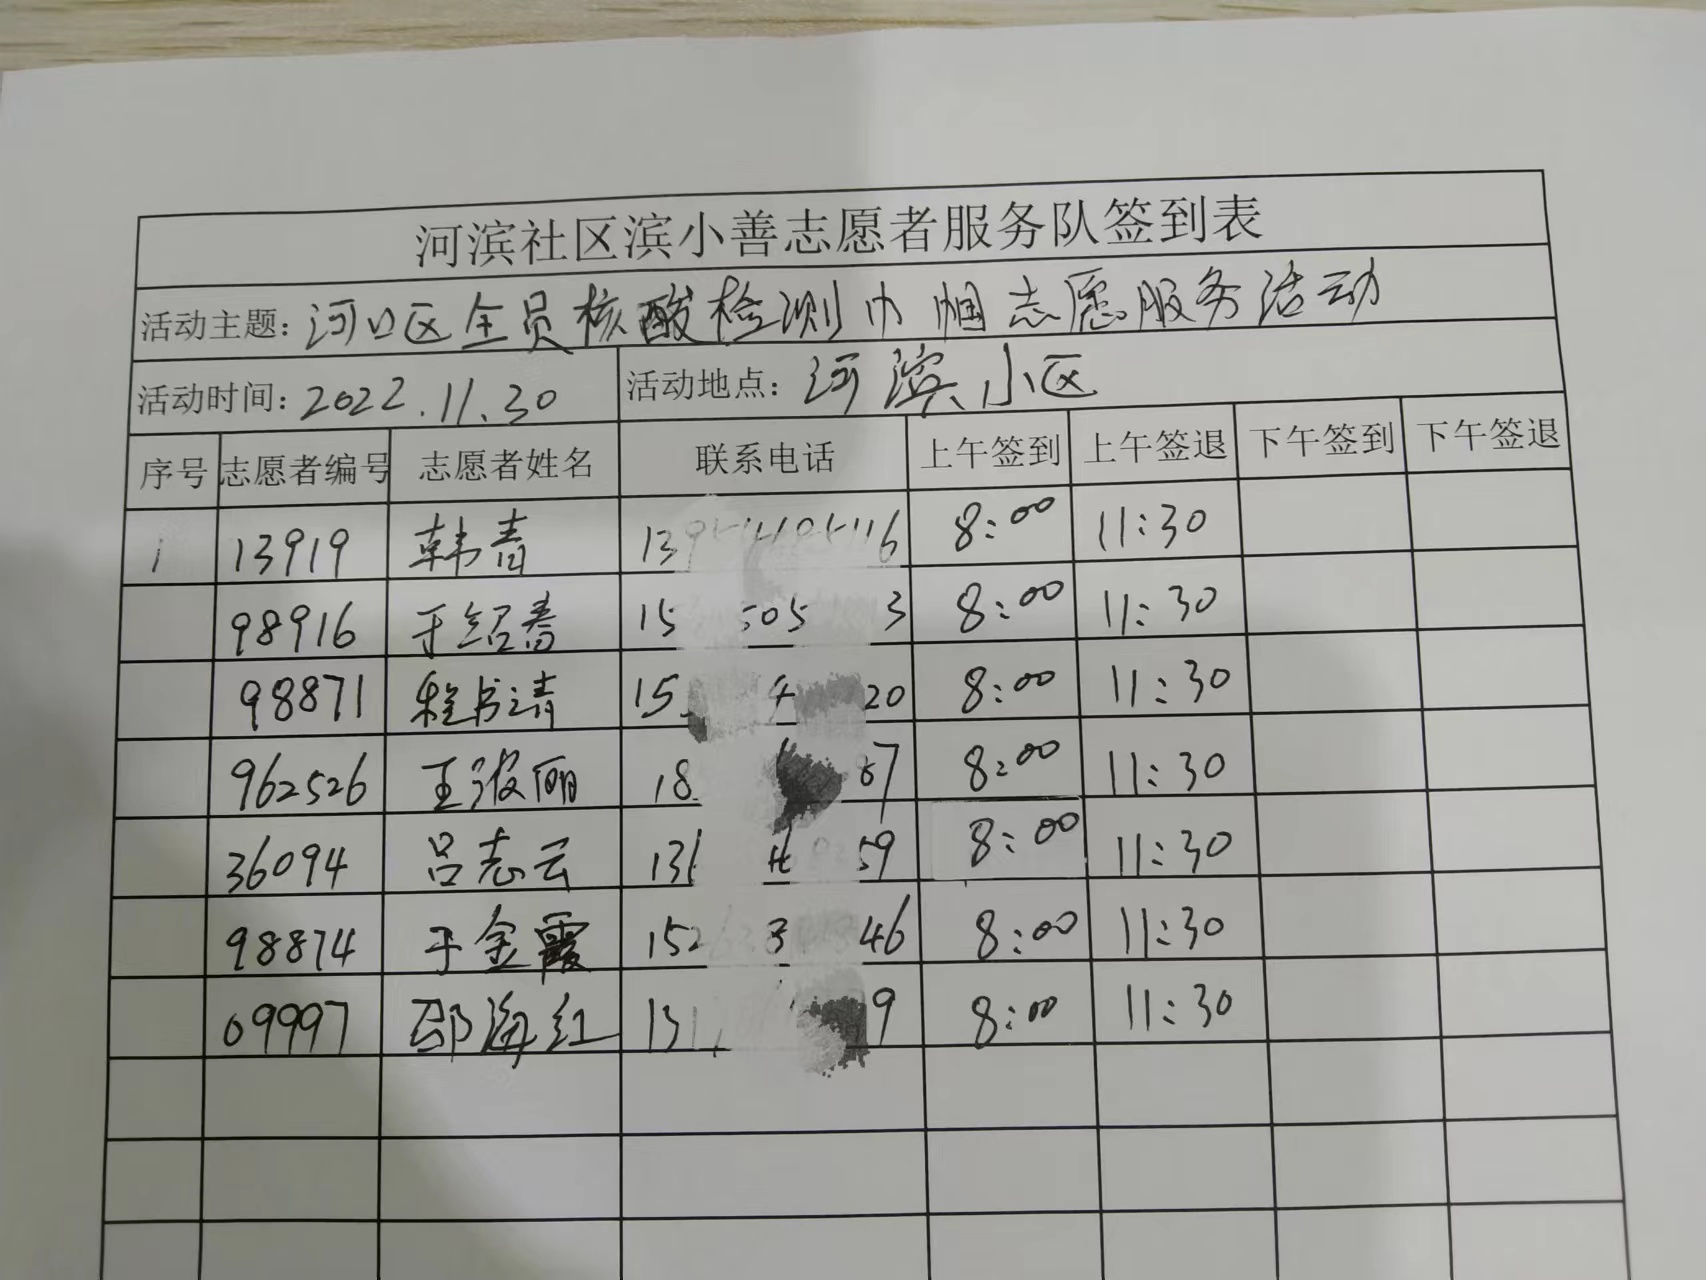 河滨社区滨小善志愿者服务队签到表
活动主题：河口区全员核酸检测巾帼志愿服务活动
活动时间：2022.11.30 活动地点：河滨小区
序号 志愿者编号 志愿者姓名 联系电话 上午签到 上午签退 下午签到 下午签退
1 13919 韩青 8:00 11:30
98916 于绍春 8:00 11:30
98871 程书清 8:00 11:30
962526 王淑丽 8:00 11:30
36094 吕志云 8:00 11:30
98874 于金霞 8:00 11:30
09997 邵海红 8:00 11:30